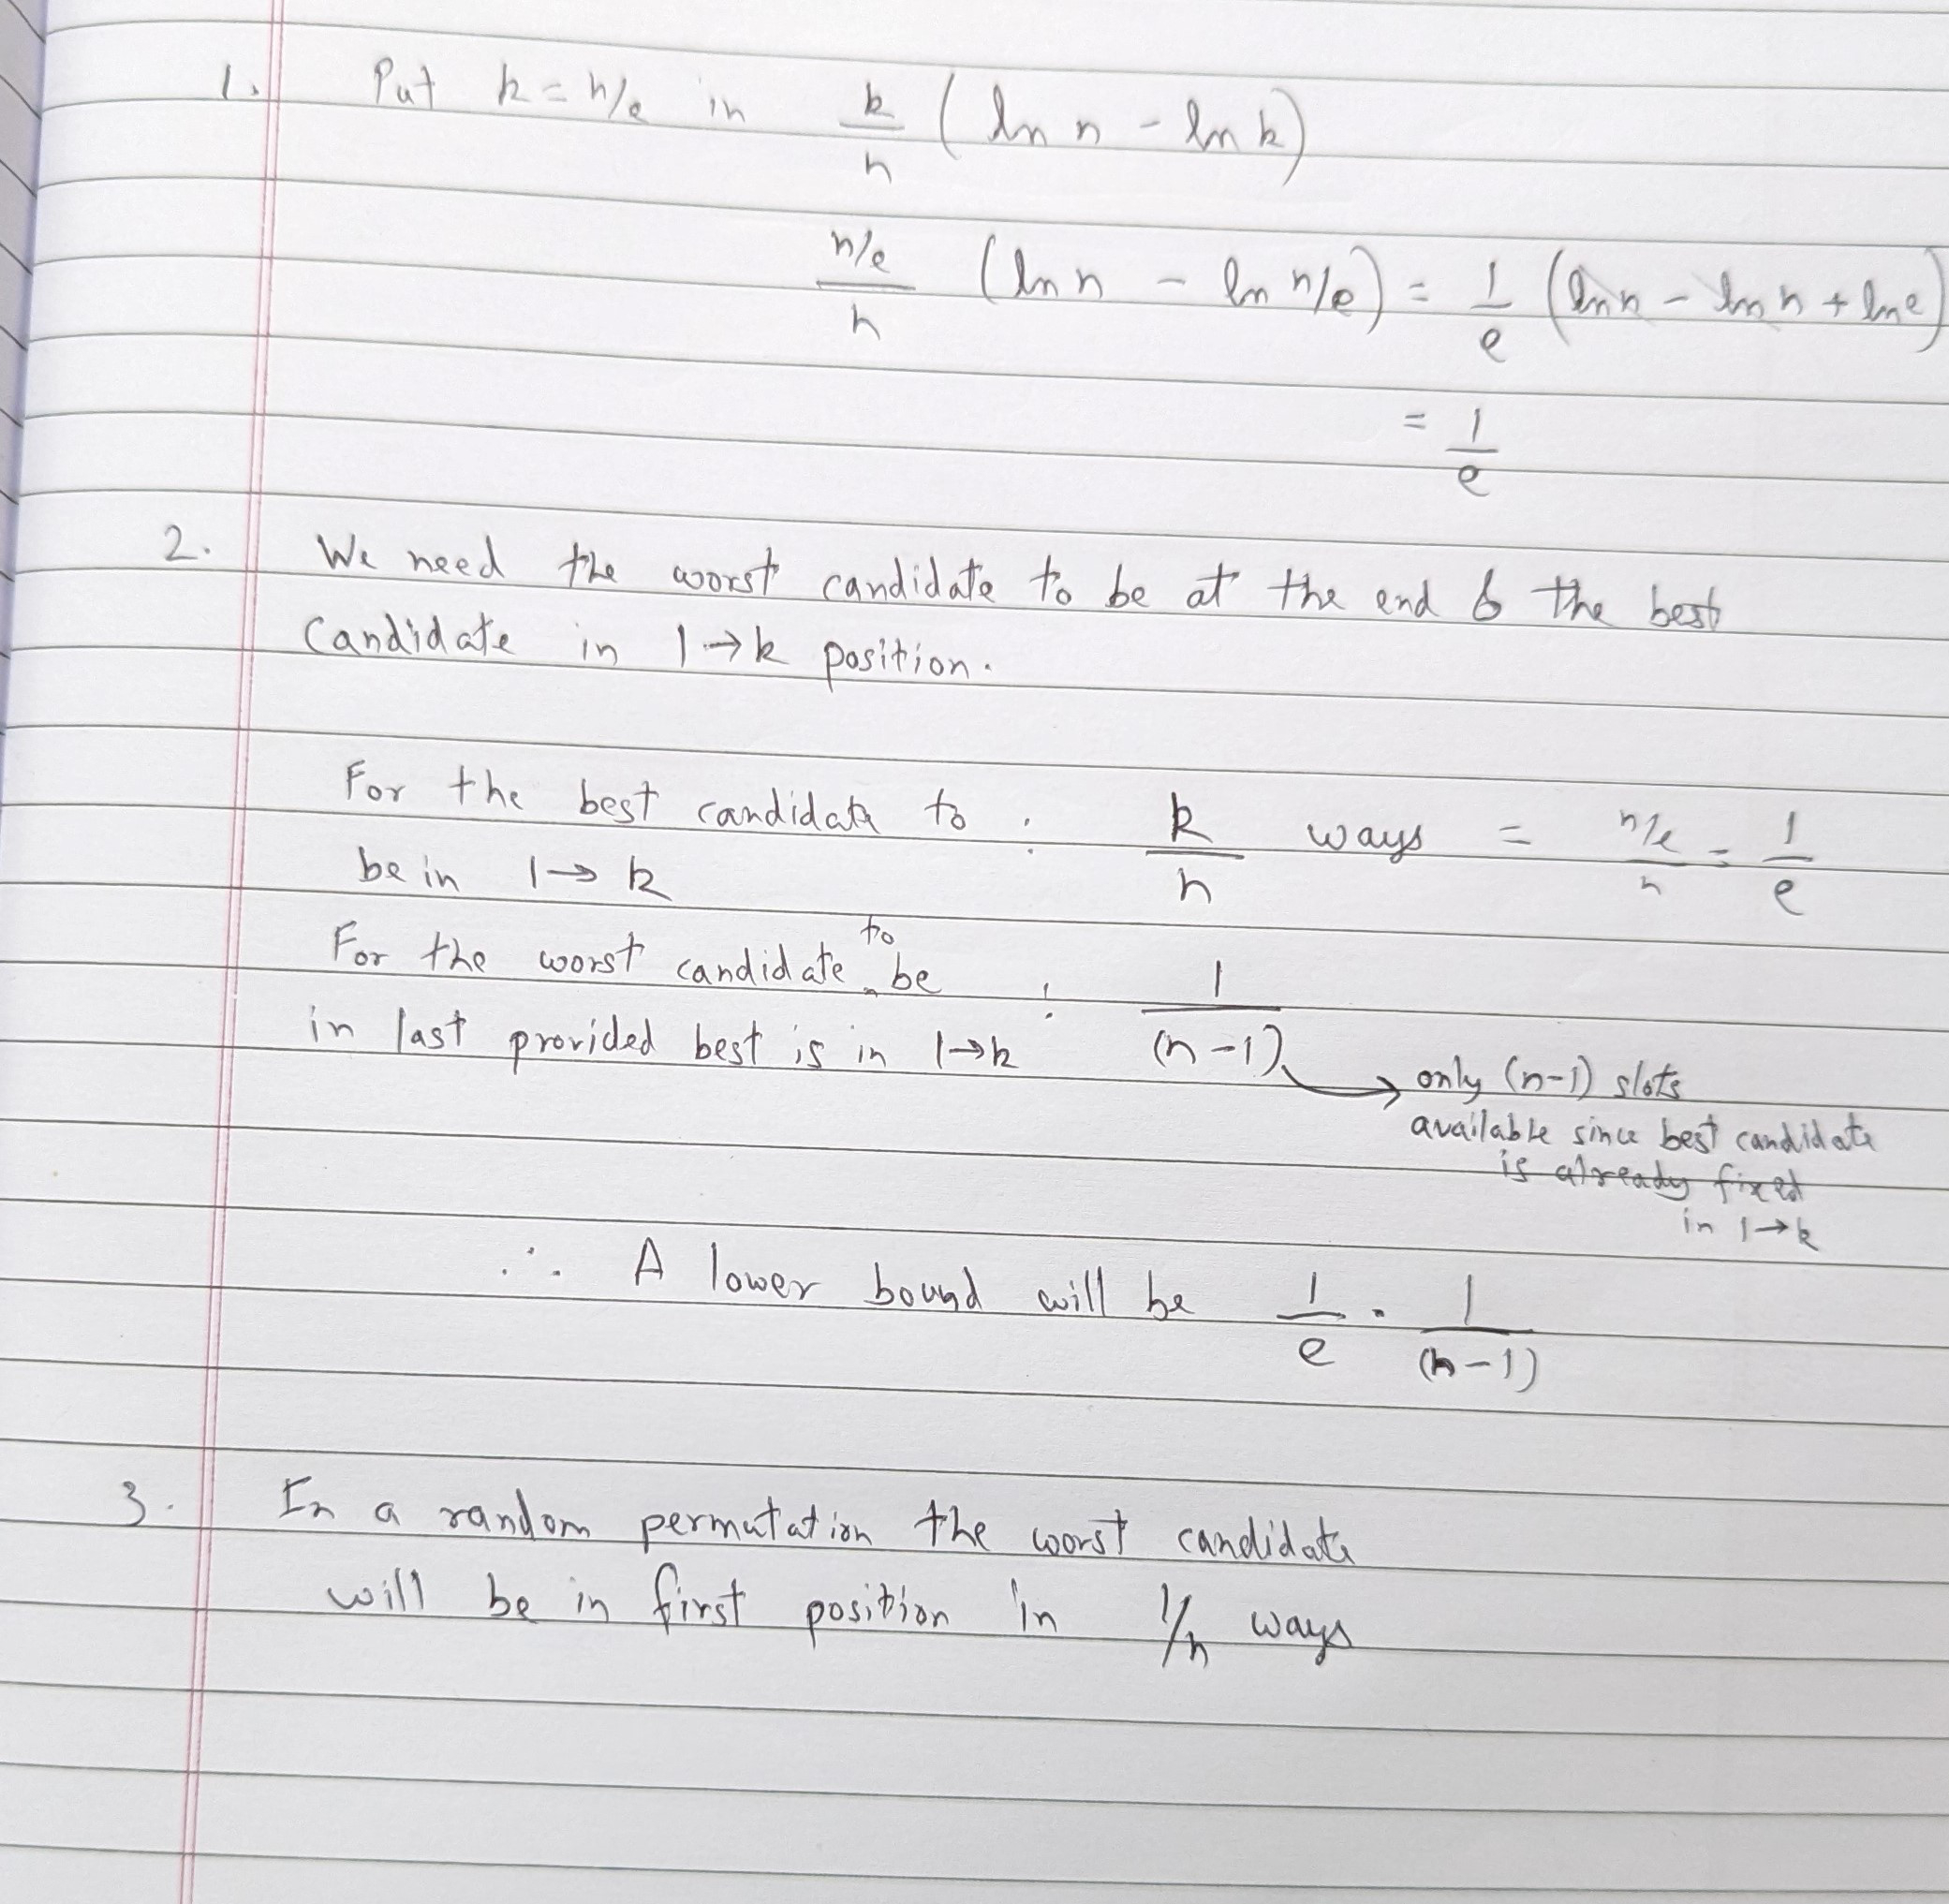 1. Put k = n/e in k/n (ln n - ln k)
n/e / n (ln n - ln n/e) = 1/e (ln n - ln n + ln e)
= 1/e
2. We need the worst candidate to be at the end & the best
candidate in 1→k position.
For the best candidate to : k/n ways = n/e / n = 1/e
be in 1→k
For the worst candidate to be : 1/(n-1)
in last provided best is in 1→k
→ only (n-1) slots
available since best candidate
is already fixed
in 1→k
∴ A lower bound will be 1/e · 1/(n-1)
3. In a random permutation the worst candidate
will be in first position in 1/n ways